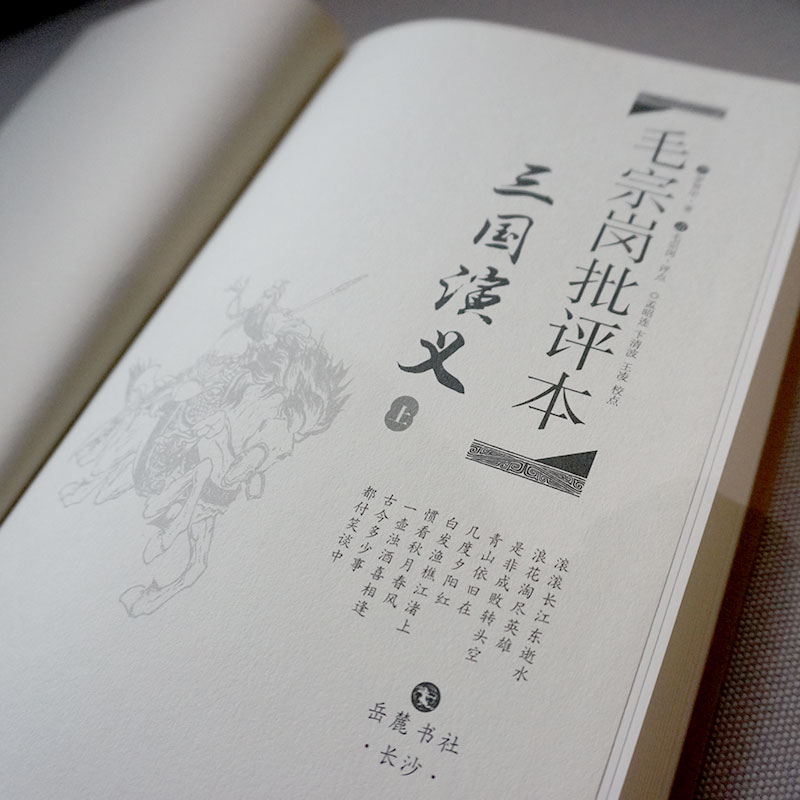 毛宗岗·评点 ◎孟昭连 卞清波 王凌 校点
毛宗岗批评本
三国演义
上
滚滚长江东逝水
浪花淘尽英雄
是非成败转头空
青山依旧在
几度夕阳红
白发渔樵江渚上
惯看秋月春风
一壶浊酒喜相逢
古今多少事
都付笑谈中
岳麓书社
·长沙·